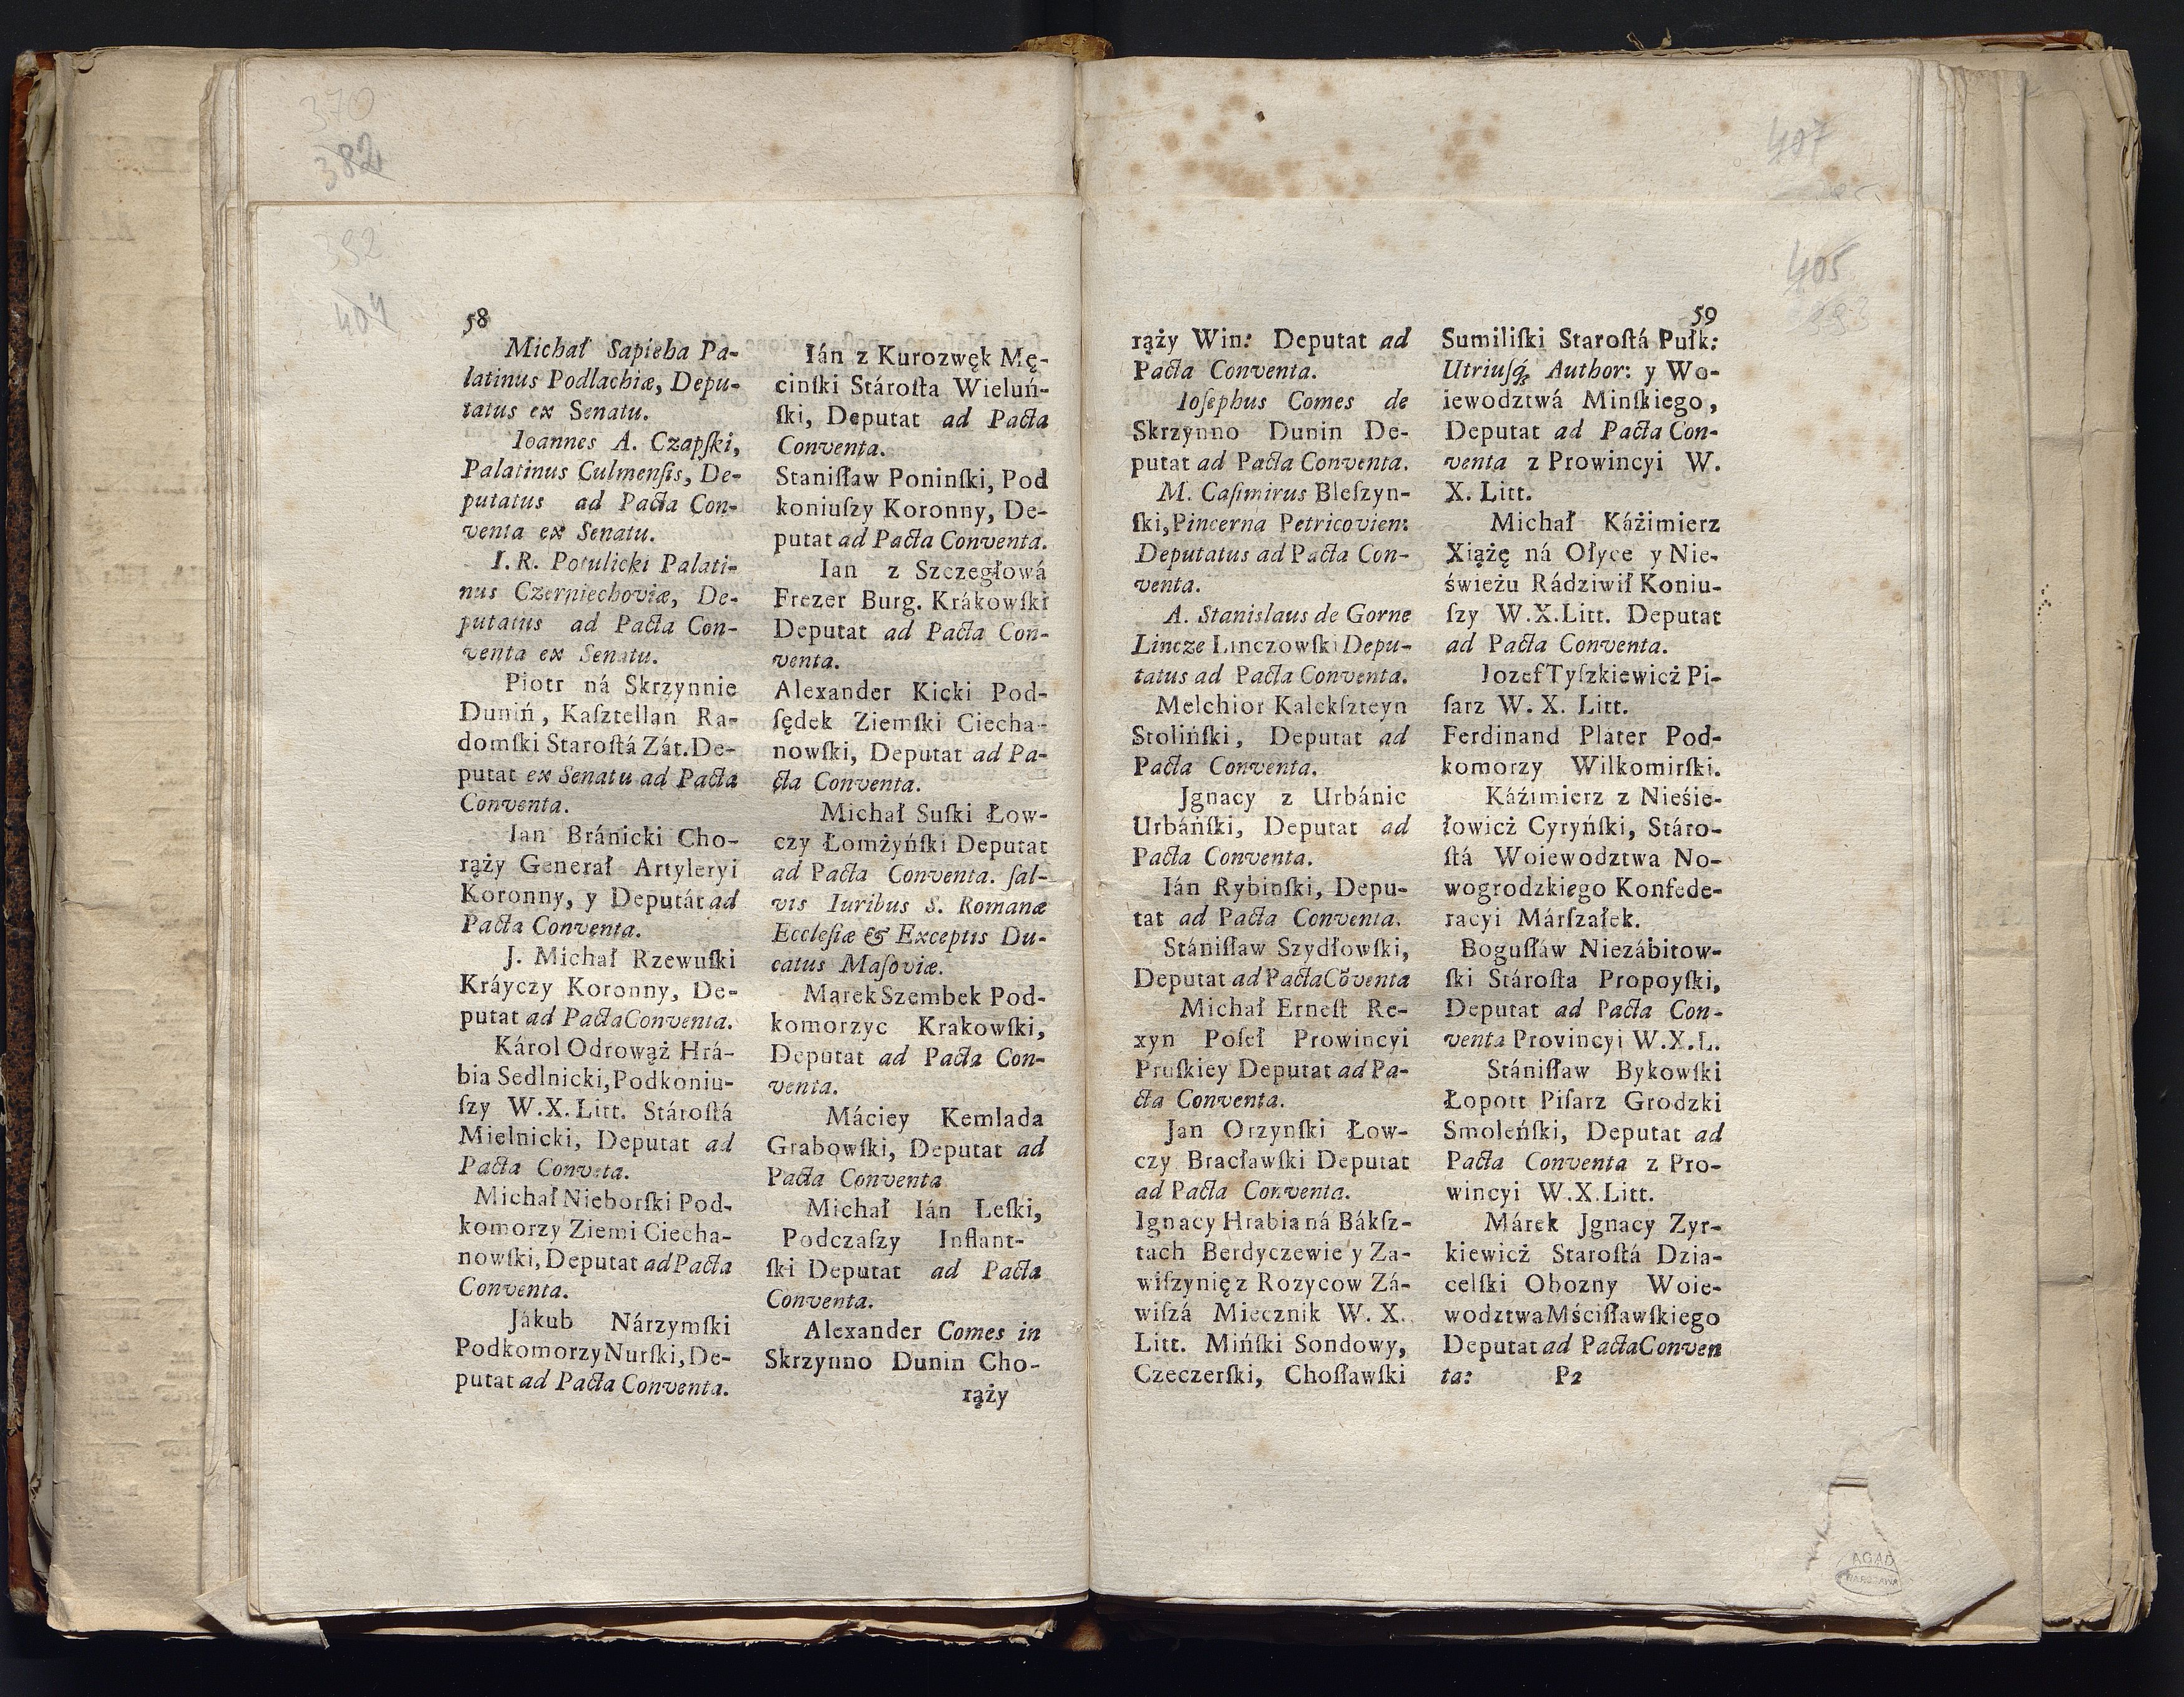 370
382
392
404
58
Michał Sapieha Pa-
latinus Podlachiæ, Depu-
tatus ex Senatu.
Ioannes A. Czapſki,
Palatinus Culmenſis, De-
putatus ad Pacta Con-
venta ex Senatu.
I. R. Potulicki Palati-
nus Czerniechoviæ, De-
putatus ad Pacta Con-
venta ex Senatu.
Piotr ná Skrzynnie
Duniń, Kaſztellan Ra-
domſki Staroſtá Zát. De-
putat ex Senatu ad Pacta
Conventa.
Ian Bránicki Cho-
rąży Generał Artyleryi
Koronny, y Deputát ad
Pacta Conventa.
J. Michał Rzewuſki
Kráyczy Koronny, De-
putat ad Pacta Conventa.
Károl Odrowąż Hrá-
bia Sedlnicki, Podkoniu-
ſzy W. X. Litt. Stároſtá
Mielnicki, Deputat ad
Pacta Conveta.
Michał Nieborſki Pod-
komorzy Ziemi Ciecha-
nowſki, Deputat ad Pacta
Conventa.
Jákub Nárzymſki
Podkomorzy Nurſki, De-
putat ad Pacta Conventa.
Ián z Kurozwęk Mę-
cinſki Stároſta Wieluń-
ſki, Deputat ad Pacta
Conventa.
Staniſław Poninſki, Pod
koniuſzy Koronny, De-
putat ad Pacta Conventa.
Ian z Szczegłowá
Frezer Burg. Krákowſki
Deputat ad Pacta Con-
venta.
Alexander Kicki Pod-
ſędek Ziemſki Ciecha-
nowſki, Deputat ad Pa-
cta Conventa.
Michał Suſki Łow-
czy Łomżyńſki Deputat
ad Pacta Conventa. ſal-
vis Iuribus S. Romanæ
Eccleſiæ & Exceptis Du-
catus Maſoviæ.
Marek Szembek Pod-
komorzyc Krakowſki,
Deputat ad Pacta Con-
venta.
Máciey Kemlada
Grabowſki, Deputat ad
Pacta Conventa
Michał Ián Leſki,
Podczaſzy Inflant-
ſki Deputat ad Pacta
Conventa.
Alexander Comes in
Skrzynno Dunin Cho-
rąży
407
405
393
59
rąży Win: Deputat ad
Pacta Conventa.
Ioſephus Comes de
Skrzynno Dunin De-
putat ad Pacta Conventa.
M. Caſimirus Bleſzyn-
ſki, Pincerna Petricovien:
Deputatus ad Pacta Con-
venta.
A. Stanislaus de Gorne
Lincze Linczowſki Depu-
tatus ad Pacta Conventa.
Melchior Kalekſzteyn
Stolińſki, Deputat ad
Pacta Conventa.
Jgnacy z Urbánic
Urbáńſki, Deputat ad
Pacta Conventa.
Ián Rybinſki, Depu-
tat ad Pacta Conventa.
Stániſław Szydłowſki,
Deputat ad Pacta Cōventa
Michał Erneſt Re-
xyn Poſeł Prowincyi
Pruſkiey Deputat ad Pa-
cta Conventa.
Jan Orzynſki Łow-
czy Bracławſki Deputat
ad Pacta Conventa.
Ignacy Hrabia ná Bákſz-
tach Berdyczewie y Za-
wiſzynię z Rozycow Zá-
wiſzá Miecznik W. X.
Litt. Mińſki Sondowy,
Czeczerſki, Choſławſki
Sumiliſki Staroſtá Pułk:
Utriuſq́ Author: y Wo-
iewodztwá Minſkiego,
Deputat ad Pacta Con-
venta z Prowincyi W.
X. Litt.
Michał Káżimierz
Xiążę ná Ołyce y Nie-
świeżu Rádziwił Koniu-
ſzy W. X. Litt. Deputat
ad Pacta Conventa.
Jozef Tyſzkiewicż Pi-
ſarz W. X. Litt.
Ferdinand Pláter Pod-
komorzy Wilkomirſki.
Káźimierz z Nieśie-
łowicż Cyryńſki, Stáro-
ſtá Woiewodztwa No-
wogrodzkiego Konfede-
racyi Márſzałek.
Boguſłáw Niezábitow-
ſki Stároſta Propoyſki,
Deputat ad Pacta Con-
venta Provincyi W. X. L.
Stániſław Bykowſki
Łopott Piſarz Grodzki
Smoleńſki, Deputat ad
Pacta Conventa z Pro-
wincyi W. X. Litt.
Márek Jgnacy Zyr-
kiewicż Staroſtá Dzia-
celſki Obozny Woie-
wodztwa Mściſławſkiego
Deputat ad Pacta Conven
ta: P2
AGAD
WARSZAWA